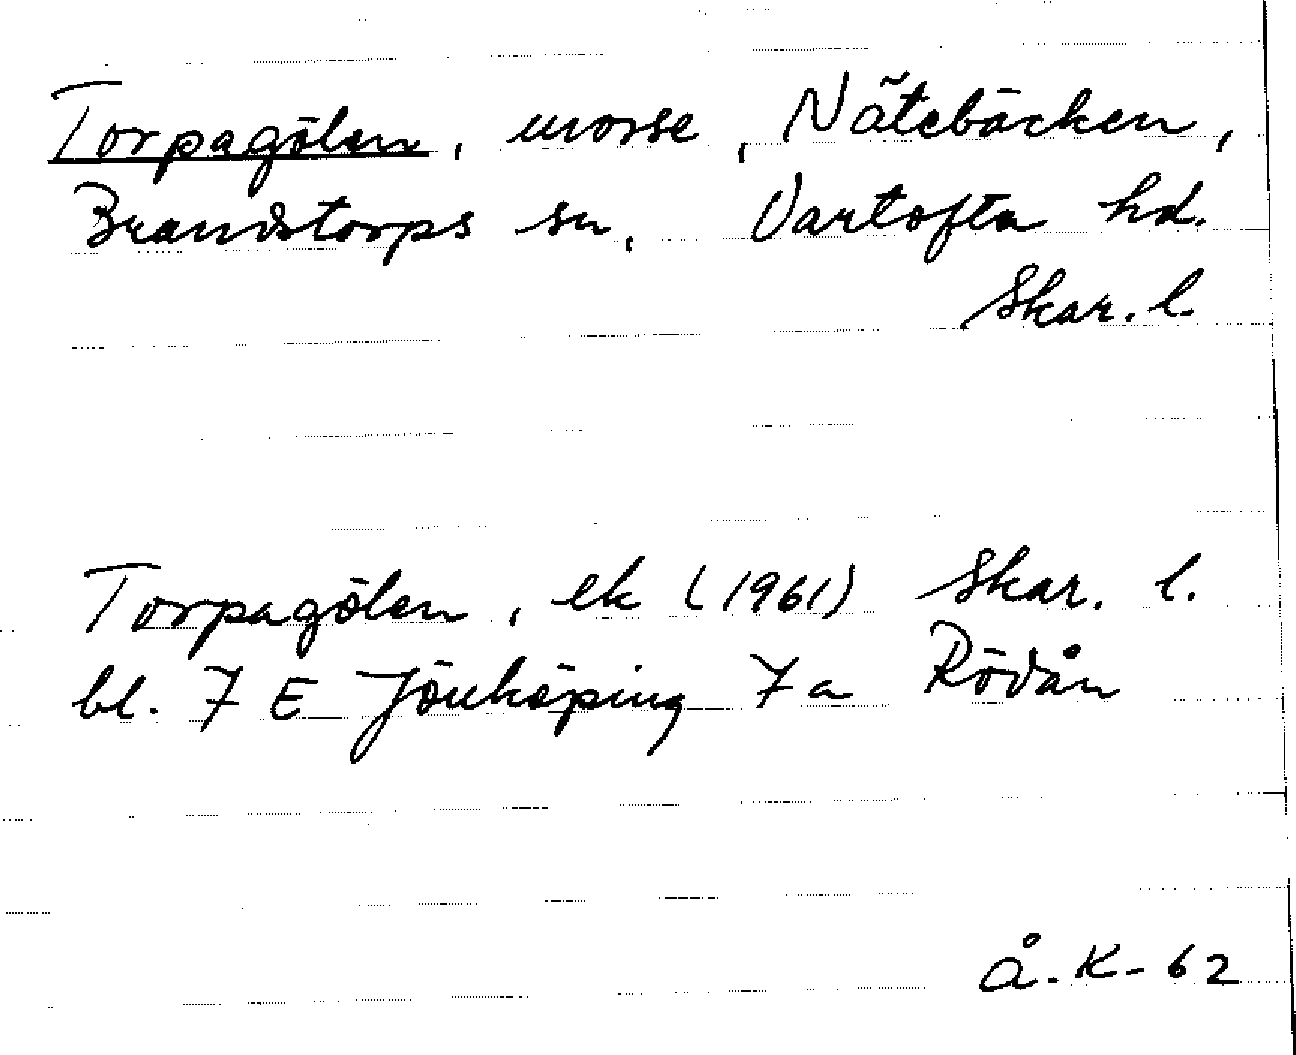 Torpagölen, mosse, Nätebäcken,
Brandstorps sn, Vartofta hd.
Skar. l.
Torpagölen, ek (1961) Skar. l.
bl. 7 E Jönköping 7a Rödån
Å. K-62